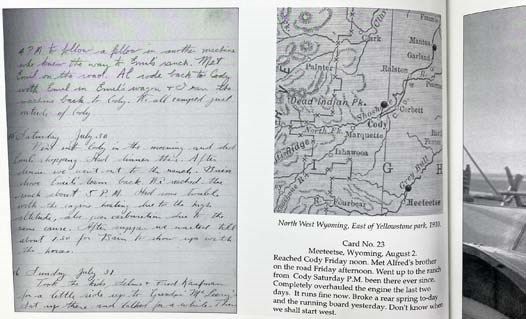 4 P.M. to follow a fellow in another machine
who knew the way to Emil's ranch. Met
Emil on the road. Al rode back to Cody
with Emil in Emil's wagon & I ran the
machine back to Cody. We all camped just
outside of Cody
Saturday July 30
Went into Cody in the morning and did
Emil's shopping. Had dinner there. After
dinner we went out to the ranch.
drove Emil's team back. We reached the
ranch about 5 P.M. Had some trouble
with the engine heating due to the high
altitude, also poor carburation due to the
same cause. After supper
about 1:30 for
the horses.
Sunday July 31
Took the kids, and Fred Kaufman
for a little ride up to
up there and talked for a while. Then
Clark
Frannie
Painter
Mantua
Garland
Ralston
Powell
Dead Indian Pk.
Shosh
Corbett
Cody
North Fk.
Marquette
Ishawooa
Grey Bull
Fourbear
Meeteetse
G H
North West Wyoming, East of Yellowstone park, 1910.
Card No. 23
Meeteetse, Wyoming, August 2.
Reached Cody Friday noon. Met Alfred's brother
on the road Friday afternoon. Went up to the ranch
from Cody Saturday P.M. been there ever since.
Completely overhauled the engine the last two
days. It runs fine now. Broke a rear spring to-day
and the running board yesterday. Don't know when
we shall start west.